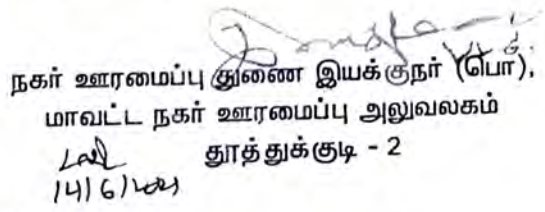 நகர் ஊரமைப்பு துணை இயக்குநர் (பொ),
மாவட்ட நகர் ஊரமைப்பு அலுவலகம்
தூத்துக்குடி - 2
14/6/2021